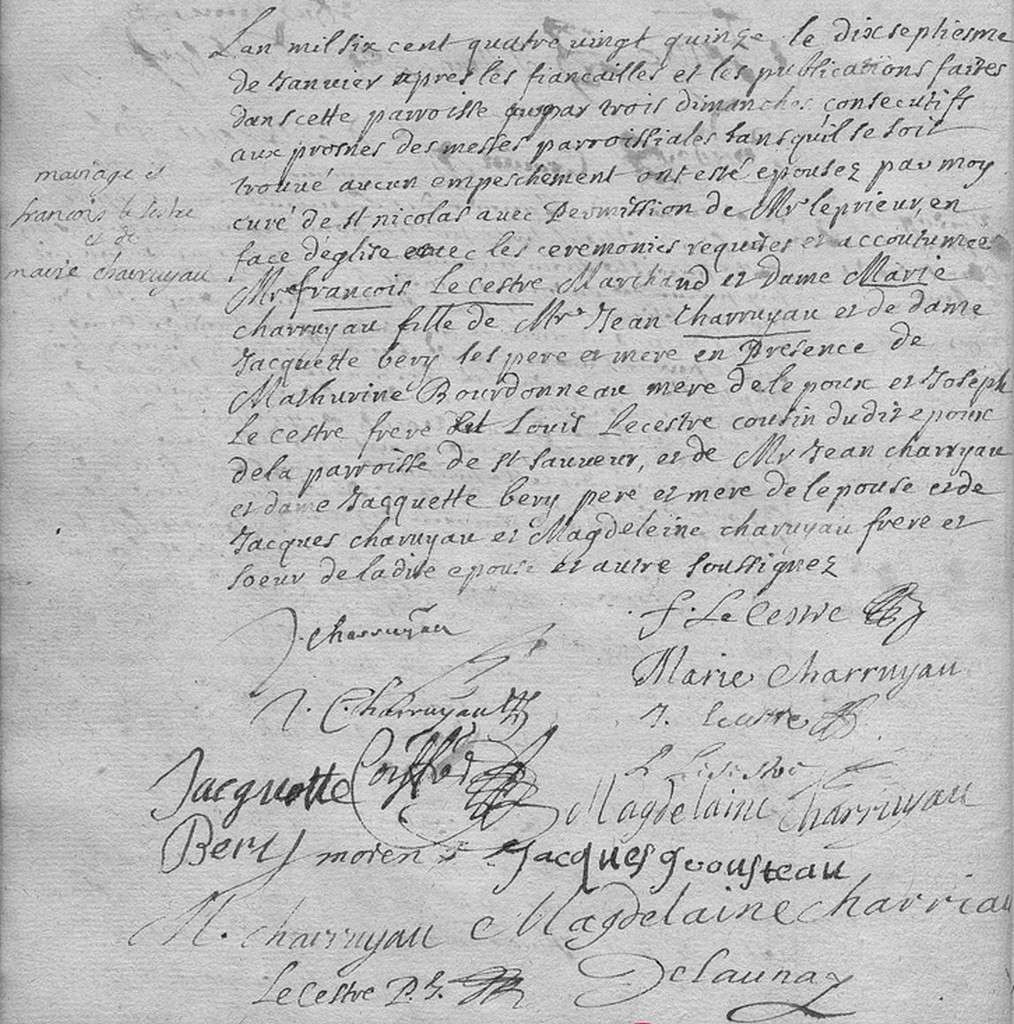 mariage et
francois le Cestre
et de
marie charruyau
Lan mil six cent quatre vingt quinze le dix septiesme
de Januier apres les fiancailles et les publications faites
dans cette parroisse par trois dimanches consecutifs
aux prosnes des messes parroissiales sans quil se soit
trouué aucun empeschement ont esté epousez par moy
curé de st nicolas avec Permission de Mr le prieur, en
face d'eglise avec les ceremonies requises et accoutumees
Mre francois Le Cestre Marchand et dame Marie
charruyau fille de Mre Jean Charruyau et de dame
Jacquette bery ses pere et mere en Presence de
Mathurine Bourdonneau mere de lepoux et Joseph
Le cestre frere Louis Lecestre cousin dudit epoux
de la parroisse de st sauveur, et de Mr Jean charryau
et dame Jacquette bery pere et mere de lepouse et de
Jacques charuyau et Magdeleine charuyau frere et
soeur de ladite epouse et autre soussignez
J. charruyau
f. Le Cestre
Marie Charruyau
J. Charruyau
J. lecestre
Jacquette
L Lecestre
Magdelaine Charruyau
Bery
moren
Jacques gousteau
M. charruyau
Magdelaine charriau
Lecestre P. J.
Delaunay